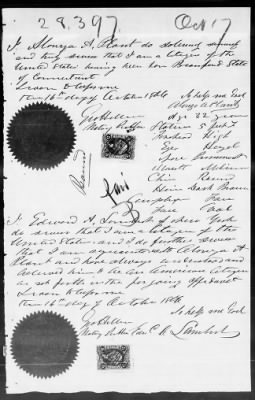 28,397 Oct 17
I Alonzo A. Plant do solemnly
and truly swear that I am a citizen of the
United States having been born Branford State
of Connecticut
Sworn to before me
this 16th day of October 1866 So help me God
Alonzo A Plant
Age 22 years
Notary Public Stature 5 feet
Forehead High
Eyes Hazel
Nose Prominent
Mouth Medium
Chin Round
Hair Dark Brown
Complexion Fair
Face Oval
I Edward A. of New York
do swear that I am a citizen of the
United States and do further swear
that I am acquainted with Alonzo A
Plant and have always understood and
believed him to be an American Citizen
as set forth in the foregoing affidavit
Sworn to before me
this 16th day of October 1866
So help me God
Notary Public